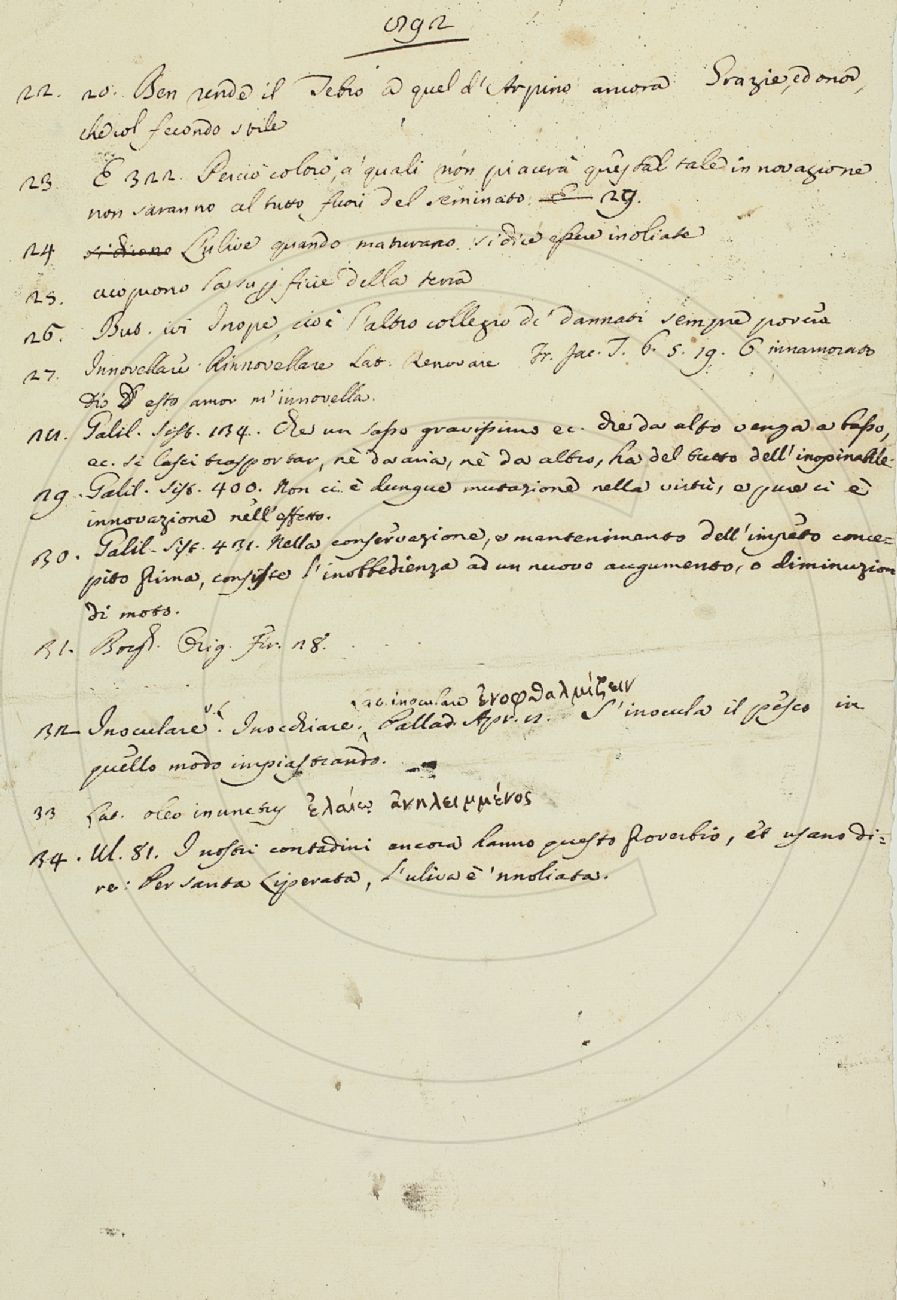 592
22. 20. Ben rende il Tebro a quel d'Arpino ancora Grazie, ed onor,
che col fecondo stile
23 E 322. Perciò coloro, a' quali non piacerà questa tale innovazione
non saranno al tutto fuori del seminato. E 29.
24 si dicono L'ulive quando maturano si dice essere inoliate
25. cuoprono la superficie della terra
26. But. ivi Inope, cioè l'altro collegio de' dannati sempre povera
27. Innovellare. Rinnovellare Lat. Renovare Fr. Jac. T. 6. 5. 19. 6 innamorato
Di D esto amor m'innovella.
28. Galil. Sist. 134. Che un sasso gravissimo ec. che da alto venga a basso,
ec. si lasci trasportar, nè da aria, nè da altro, ha del tutto dell'inopinabile.
29. Galil. Sist. 400. Non ci è dunque mutazione nella virtù, e pure ci è
innovazione nell'effetto.
30. Galil. Sist. 431. Nella conservazione, e mantenimento dell'impeto conce=
pito prima, consiste l'inobbedienza ad un nuovo augumento, o diminuzion
di moto.
31. Borgh. Orig. Fir. 28.
Lat. inoculare ἐνοφθαλμίζειν
32 Inoculare. Inocchiare. Pallad. Apr. 2. S'inocula il pesco in
quello modo impiastrando.
33 Lat. oleo inunctus ἐλαίῳ ἀνηλειμμένος
34. Ul. 81. I nostri contadini ancora hanno questo proverbio, et usano di=
re: Per santa Liperata, l'uliva è 'nnoliata.